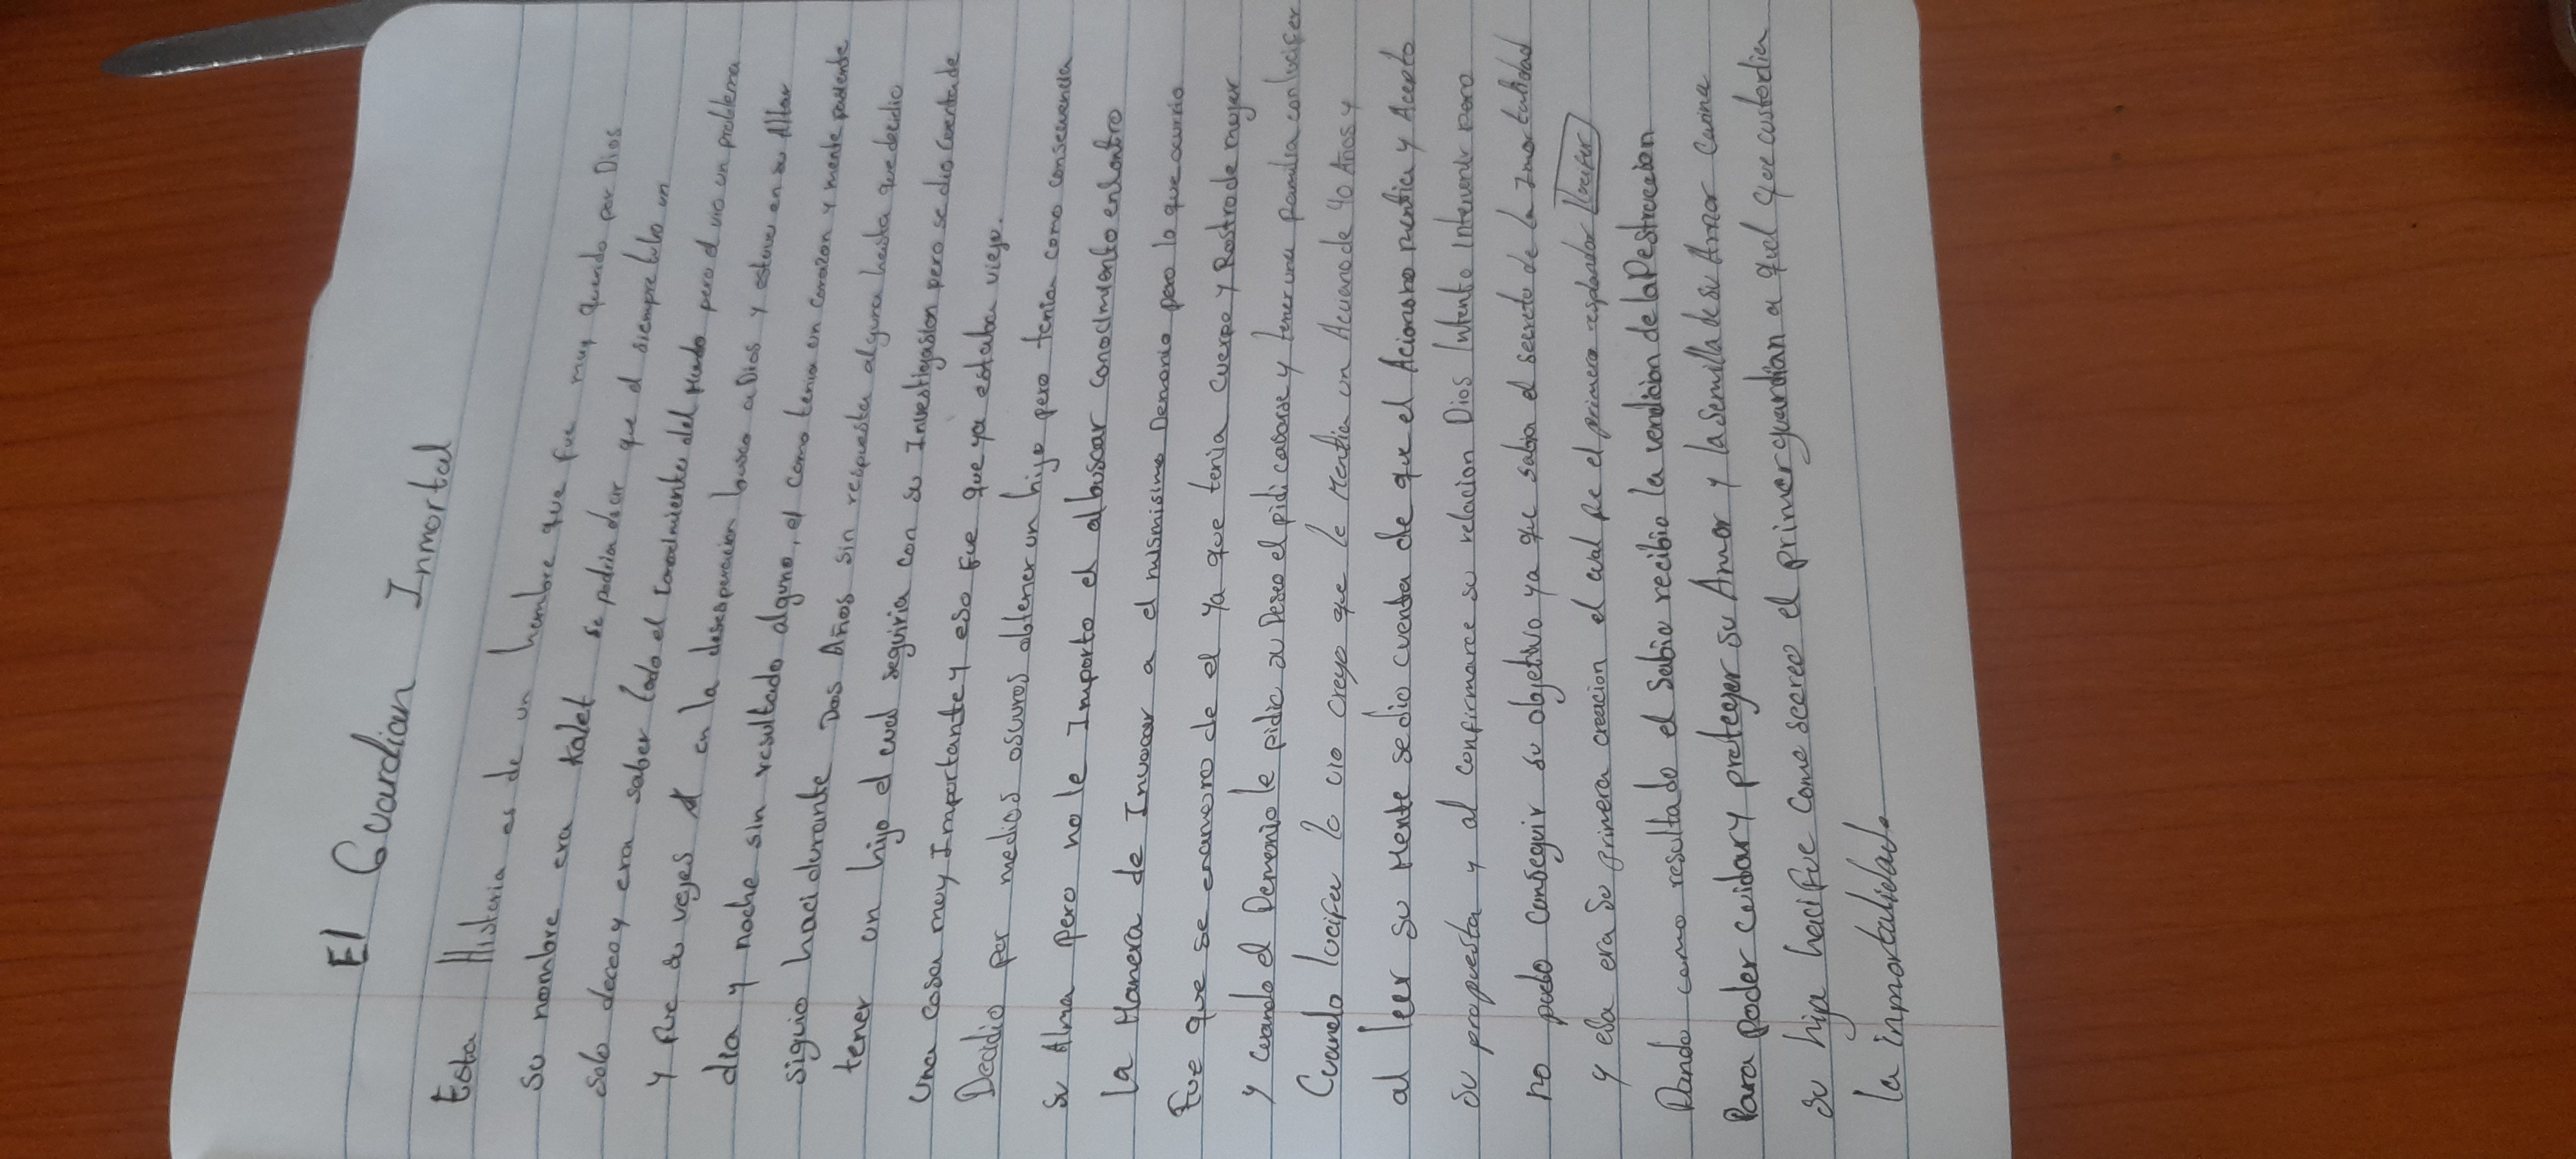 El Guardian Inmortal
Esta Historia es de un hombre que fue muy querido por Dios
su nombre era Kalet se podria decir que el siempre tubo un
solo deceo y era saber todo el conocimiento del mundo pero el vio un problema
y fue su vejes en la desesperacion busco a Dios y estuvo en su Altar
dia y noche sin resultado alguno, el como tenia un corazon y mente paciente
siguio haci durante Dos Años sin respuesta alguna hasta que decidio
tener un hijo el cual seguiria con su Investigasion pero se dio cuenta de
una cosa muy Importante y eso fue que ya estaba viejo.
Decidio por medios oscuros obtener un hijo pero tenia como consecuencia
su Alma pero no le Importo el al buscar conocimiento encontro
la Manera de Invocar a el mismisimo Demonio pero lo que ocurrio
Fue que se enamoro de el ya que tenia cuerpo y Rostro de mujer
y cuando el Demonio le pidio su Deseo el pidi casarse y tener una familia con lucifer
Cuando lucifer lo vio creyo que le Mentia un Acuano de 40 Años y
al leer su Mente se dio cuenta de que el Aciano no mentia y Acepto
su propuesta y al confirmarce su relacion Dios Intento Intervenir pero
no pudo conseguir su objetivo ya que sabia el secreto de la Inmortalidad
y esa era su primera creacion el cual fue el primero resplandor lucifer
Dando como resultado el sabio recibio la vendicion de la Destruccion
Para poder cuidar y proteger su Amor y la semilla de su Amor Carina
su hija haci fue como se creo el primer guardian a quel que custodia
la inmortalidad.